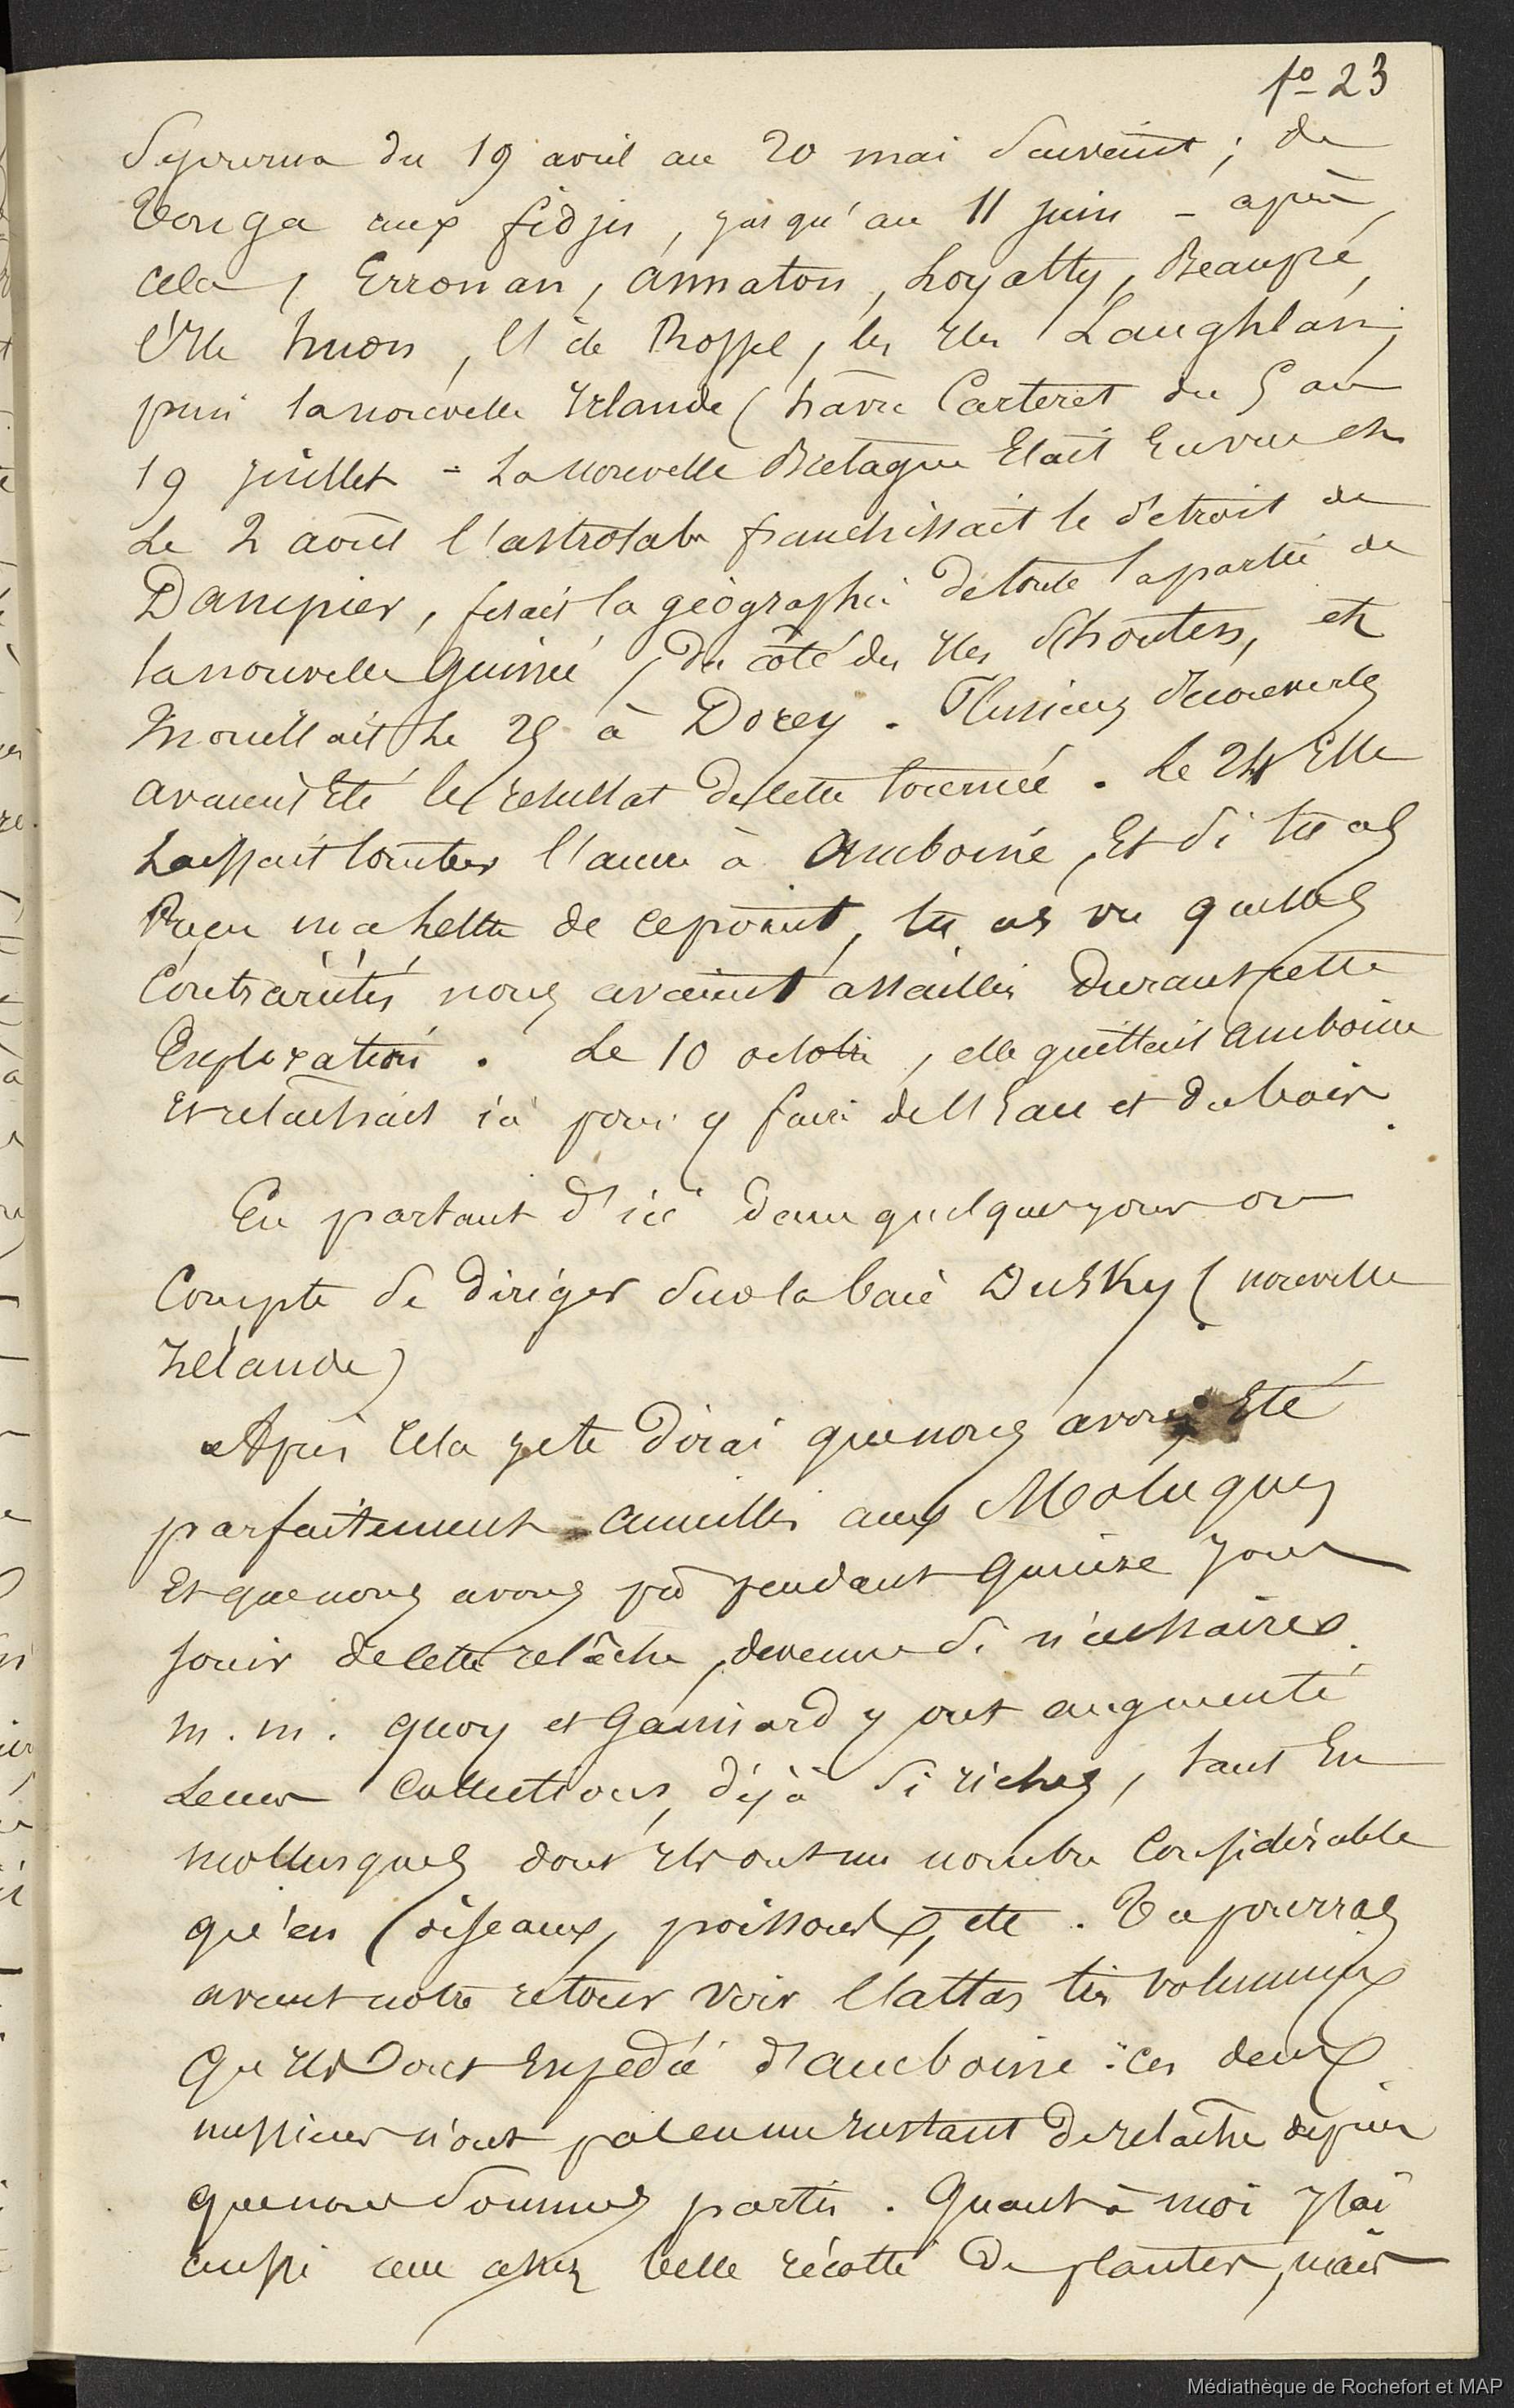 fo 23
Sejourna du 19 avril au 20 mai Suivant ; de
Tonga aux fidjis, jusqu'au 11 juin - après
cela, Erronan, annatou, Loyalty, Beaupré,
l'Ile huon, l'I de Rossel, les Iles Laughlan,
puis la nouvelle Irlande (hâvre Carteret du 5 au
19 juillet - La nouvelle Bretagne Etait En vue et
Le 2 août l'astrolabe franchissait le détroit de
Dampier, fesait la géographie de toute la partie de
la nouvelle Guinée, du côté des Iles Schouten, et
Mouillait Le 25 à Dorey. Plusieurs découvertes
avaient Eté le résultat de cette tournée. Le 24 Elle
Laissait tomber l'ancre à Amboine, Et Si tu as
Reçu ma Lettre de ce point, tu as vu quelles
Contrariétés nous avaient assaillis Durant cette
Exploration. Le 10 octobre, elle quittait amboine
Et relachait ici pour y faire de l'Eau et du bois.
En partant d'ici dans quelques jours on
Compte Se Diriger Sur la baie Dusky (nouvelle
Zélande)
Après Cela je te Dirai que nous avons Eté
parfaitement accueillis aux Moluques
Et que nous avons pû pendant quinze jours
Jouir de cette relâche, devenue Si nécessaire.
m. m. Quoy et Gaimard y ont augmenté
Leurs Collections, déjà Si riches, tant En
mollusques dont Ils ont un nombre Considérable
qu'en oiseaux, poissons, etc. Tu pourras
avant notre retour voir l'attas très volumineux
Qu'Ils ont Expédié d'amboine : ces deux
messieurs n'ont pas eu un Instant De relache depuis
que nous Sommes partis. Quant à moi J'ai
aussi eu assez belle récolte De plantes, mais
Médiathèque de Rochefort et MAP